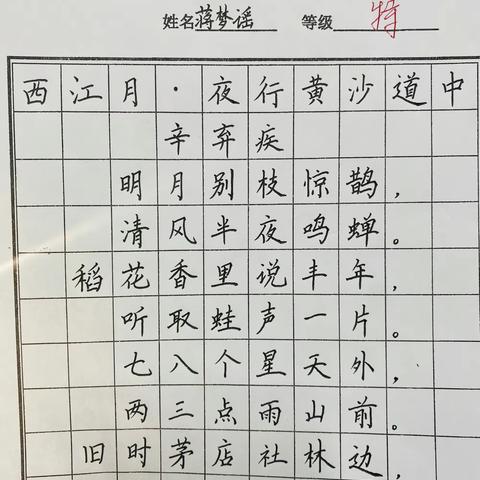 姓名蒋梦谣 等级特
西江月·夜行黄沙道中
辛弃疾
明月别枝惊鹊，
清风半夜鸣蝉。
稻花香里说丰年，
听取蛙声一片。
七八个星天外，
两三点雨山前。
旧时茅店社林边，